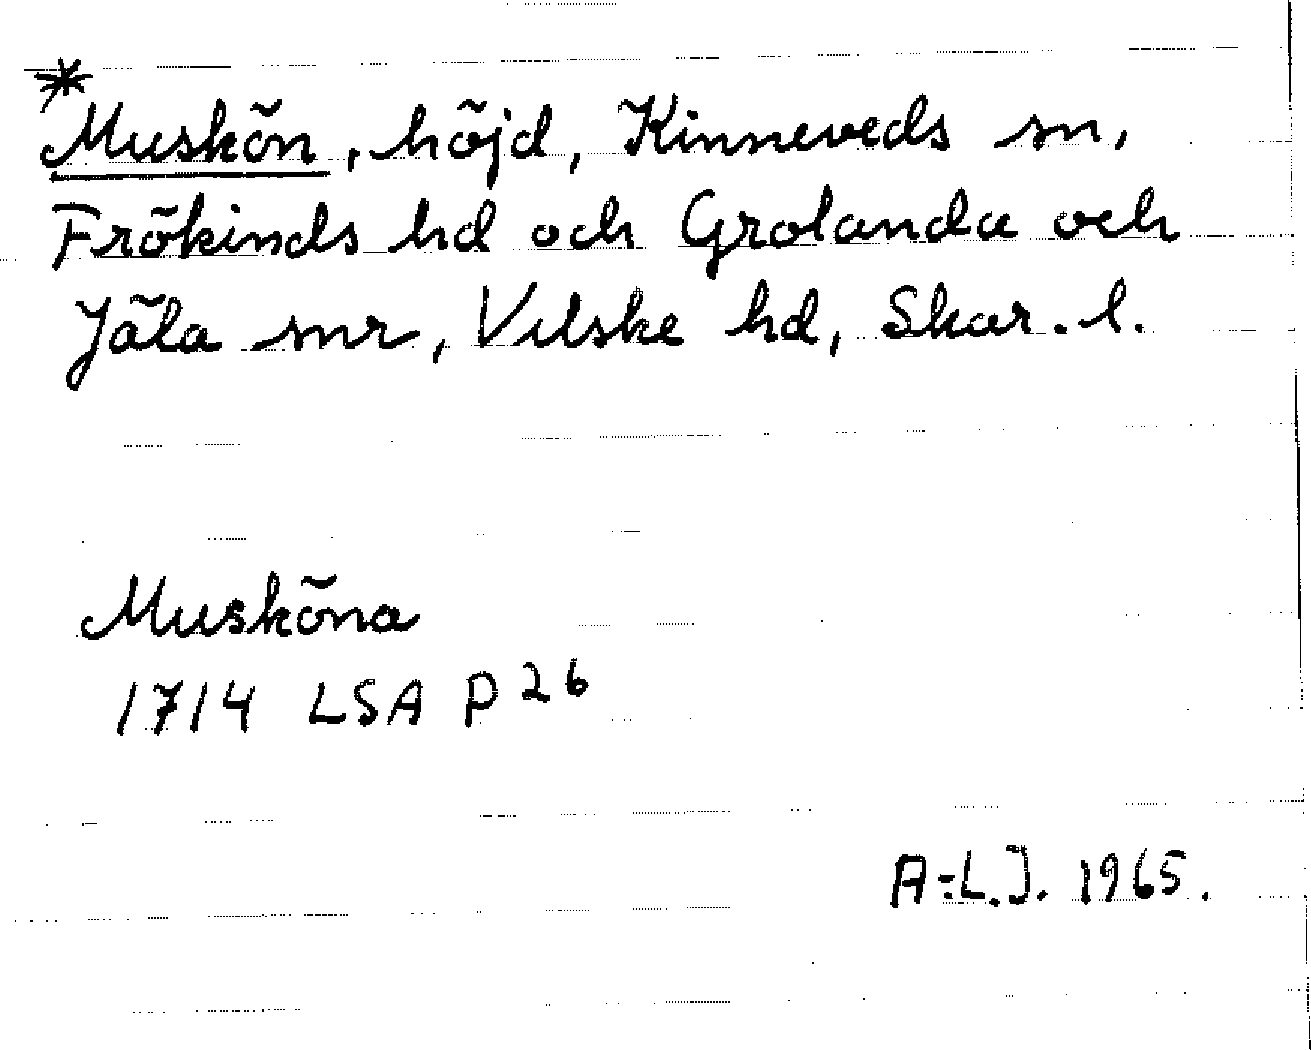 *Muskön, höjd, Kinneveds sn,
Frökinds hd och Grolanda och
Jäla snr, Vilske hd, Skar. l.
Musköna
1714 LSA P 26
A-L.J. 1965.